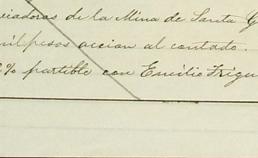 ciadoras de la Mina de Santa G
mil pesos accion al contado.
2% partible con Emilio Frigu